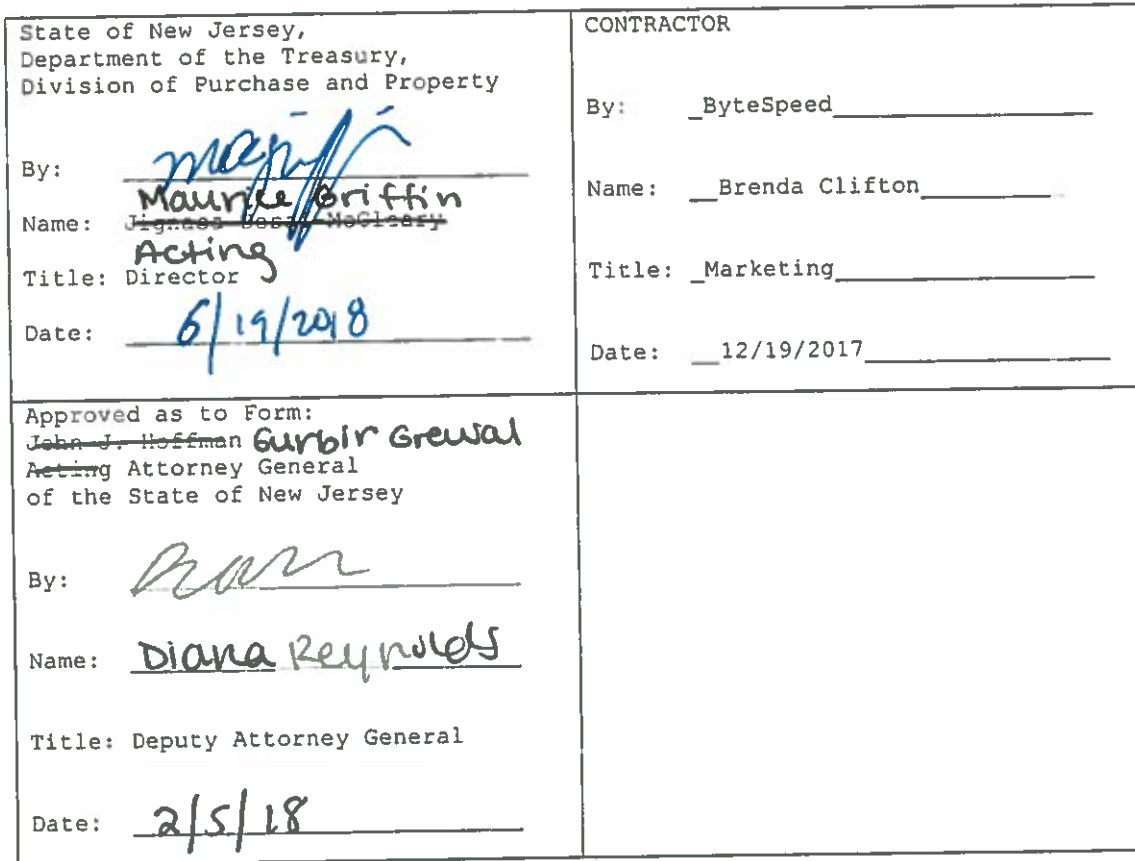 State of New Jersey,
Department of the Treasury,
Division of Purchase and Property
By:
Maurice Griffin
Name: Jignasa Desai-McCleary
Acting
Title: Director
Date: 6/19/2018
CONTRACTOR
By: _ByteSpeed
Name: __Brenda Clifton
Title: _Marketing
Date: __12/19/2017
Approved as to Form:
John J. Hoffman Gurbir Grewal
Acting Attorney General
of the State of New Jersey
By:
Name: Diana Reynolds
Title: Deputy Attorney General
Date: 2/5/18